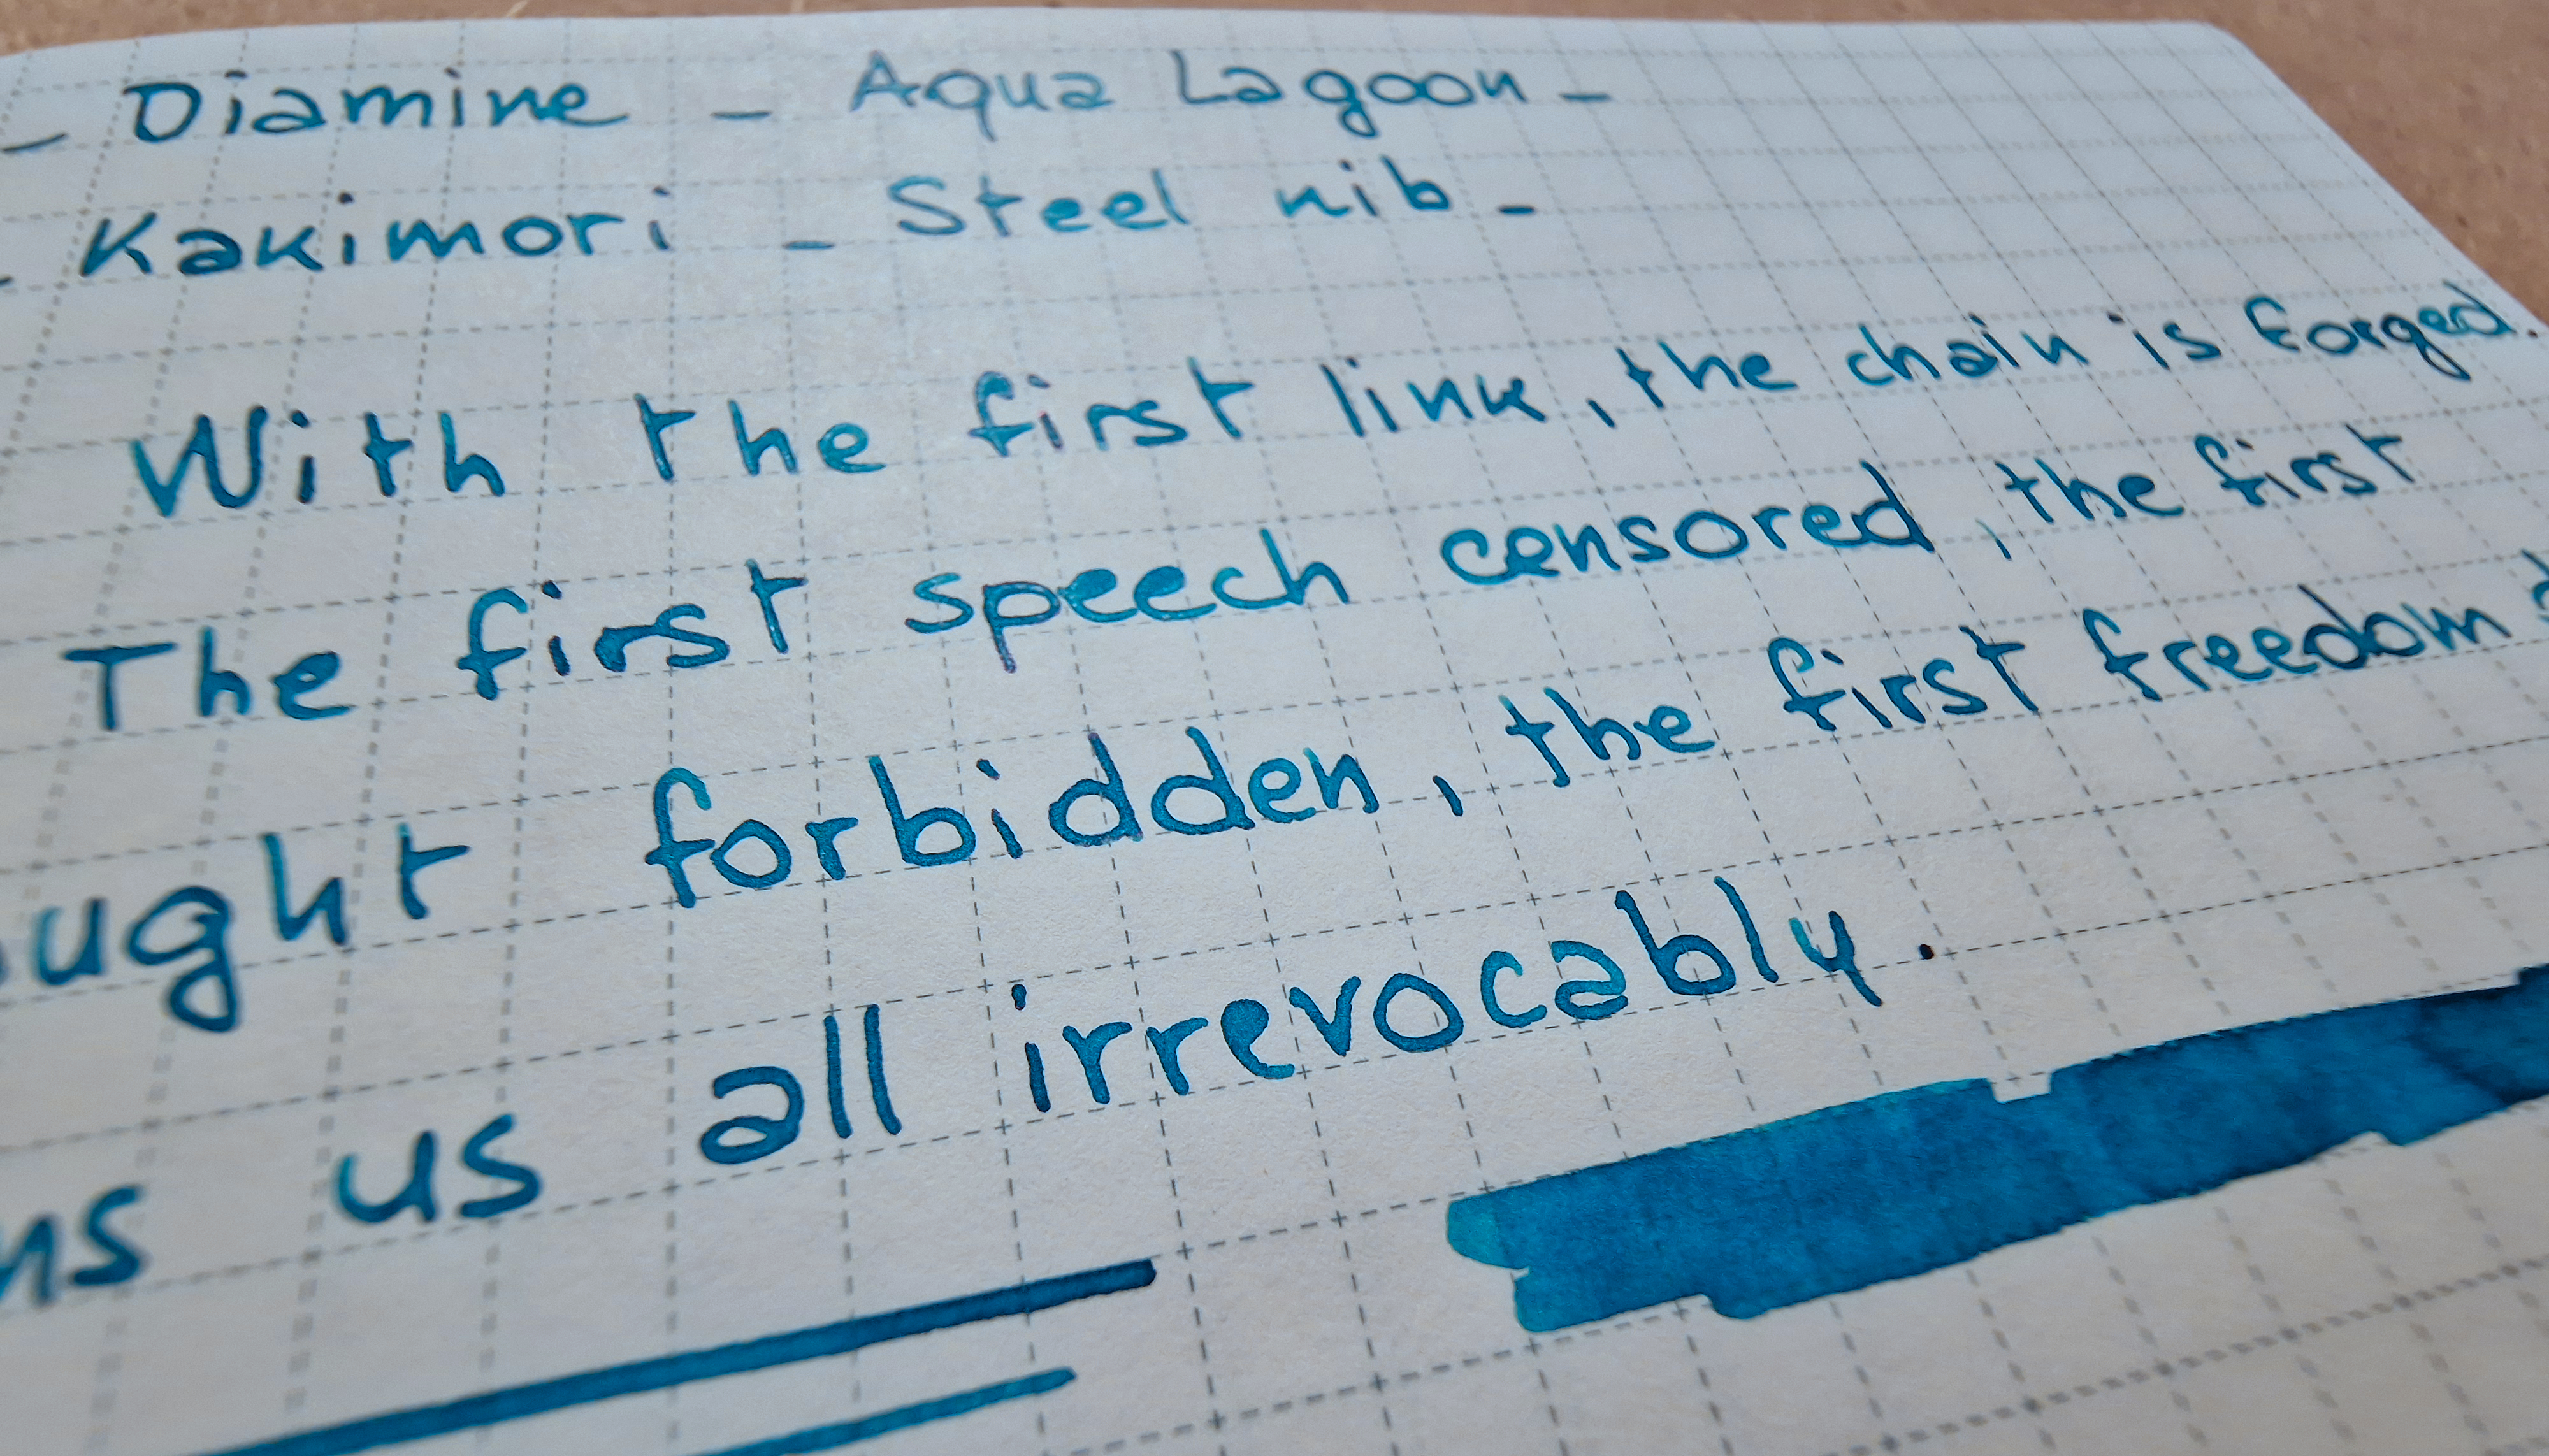 - Diamine - Aqua Lagoon -
- Kakimori - Steel nib -
With the first link, the chain is forged.
The first speech censored, the first
ught forbidden, the first freedom
ns us all irrevocably.